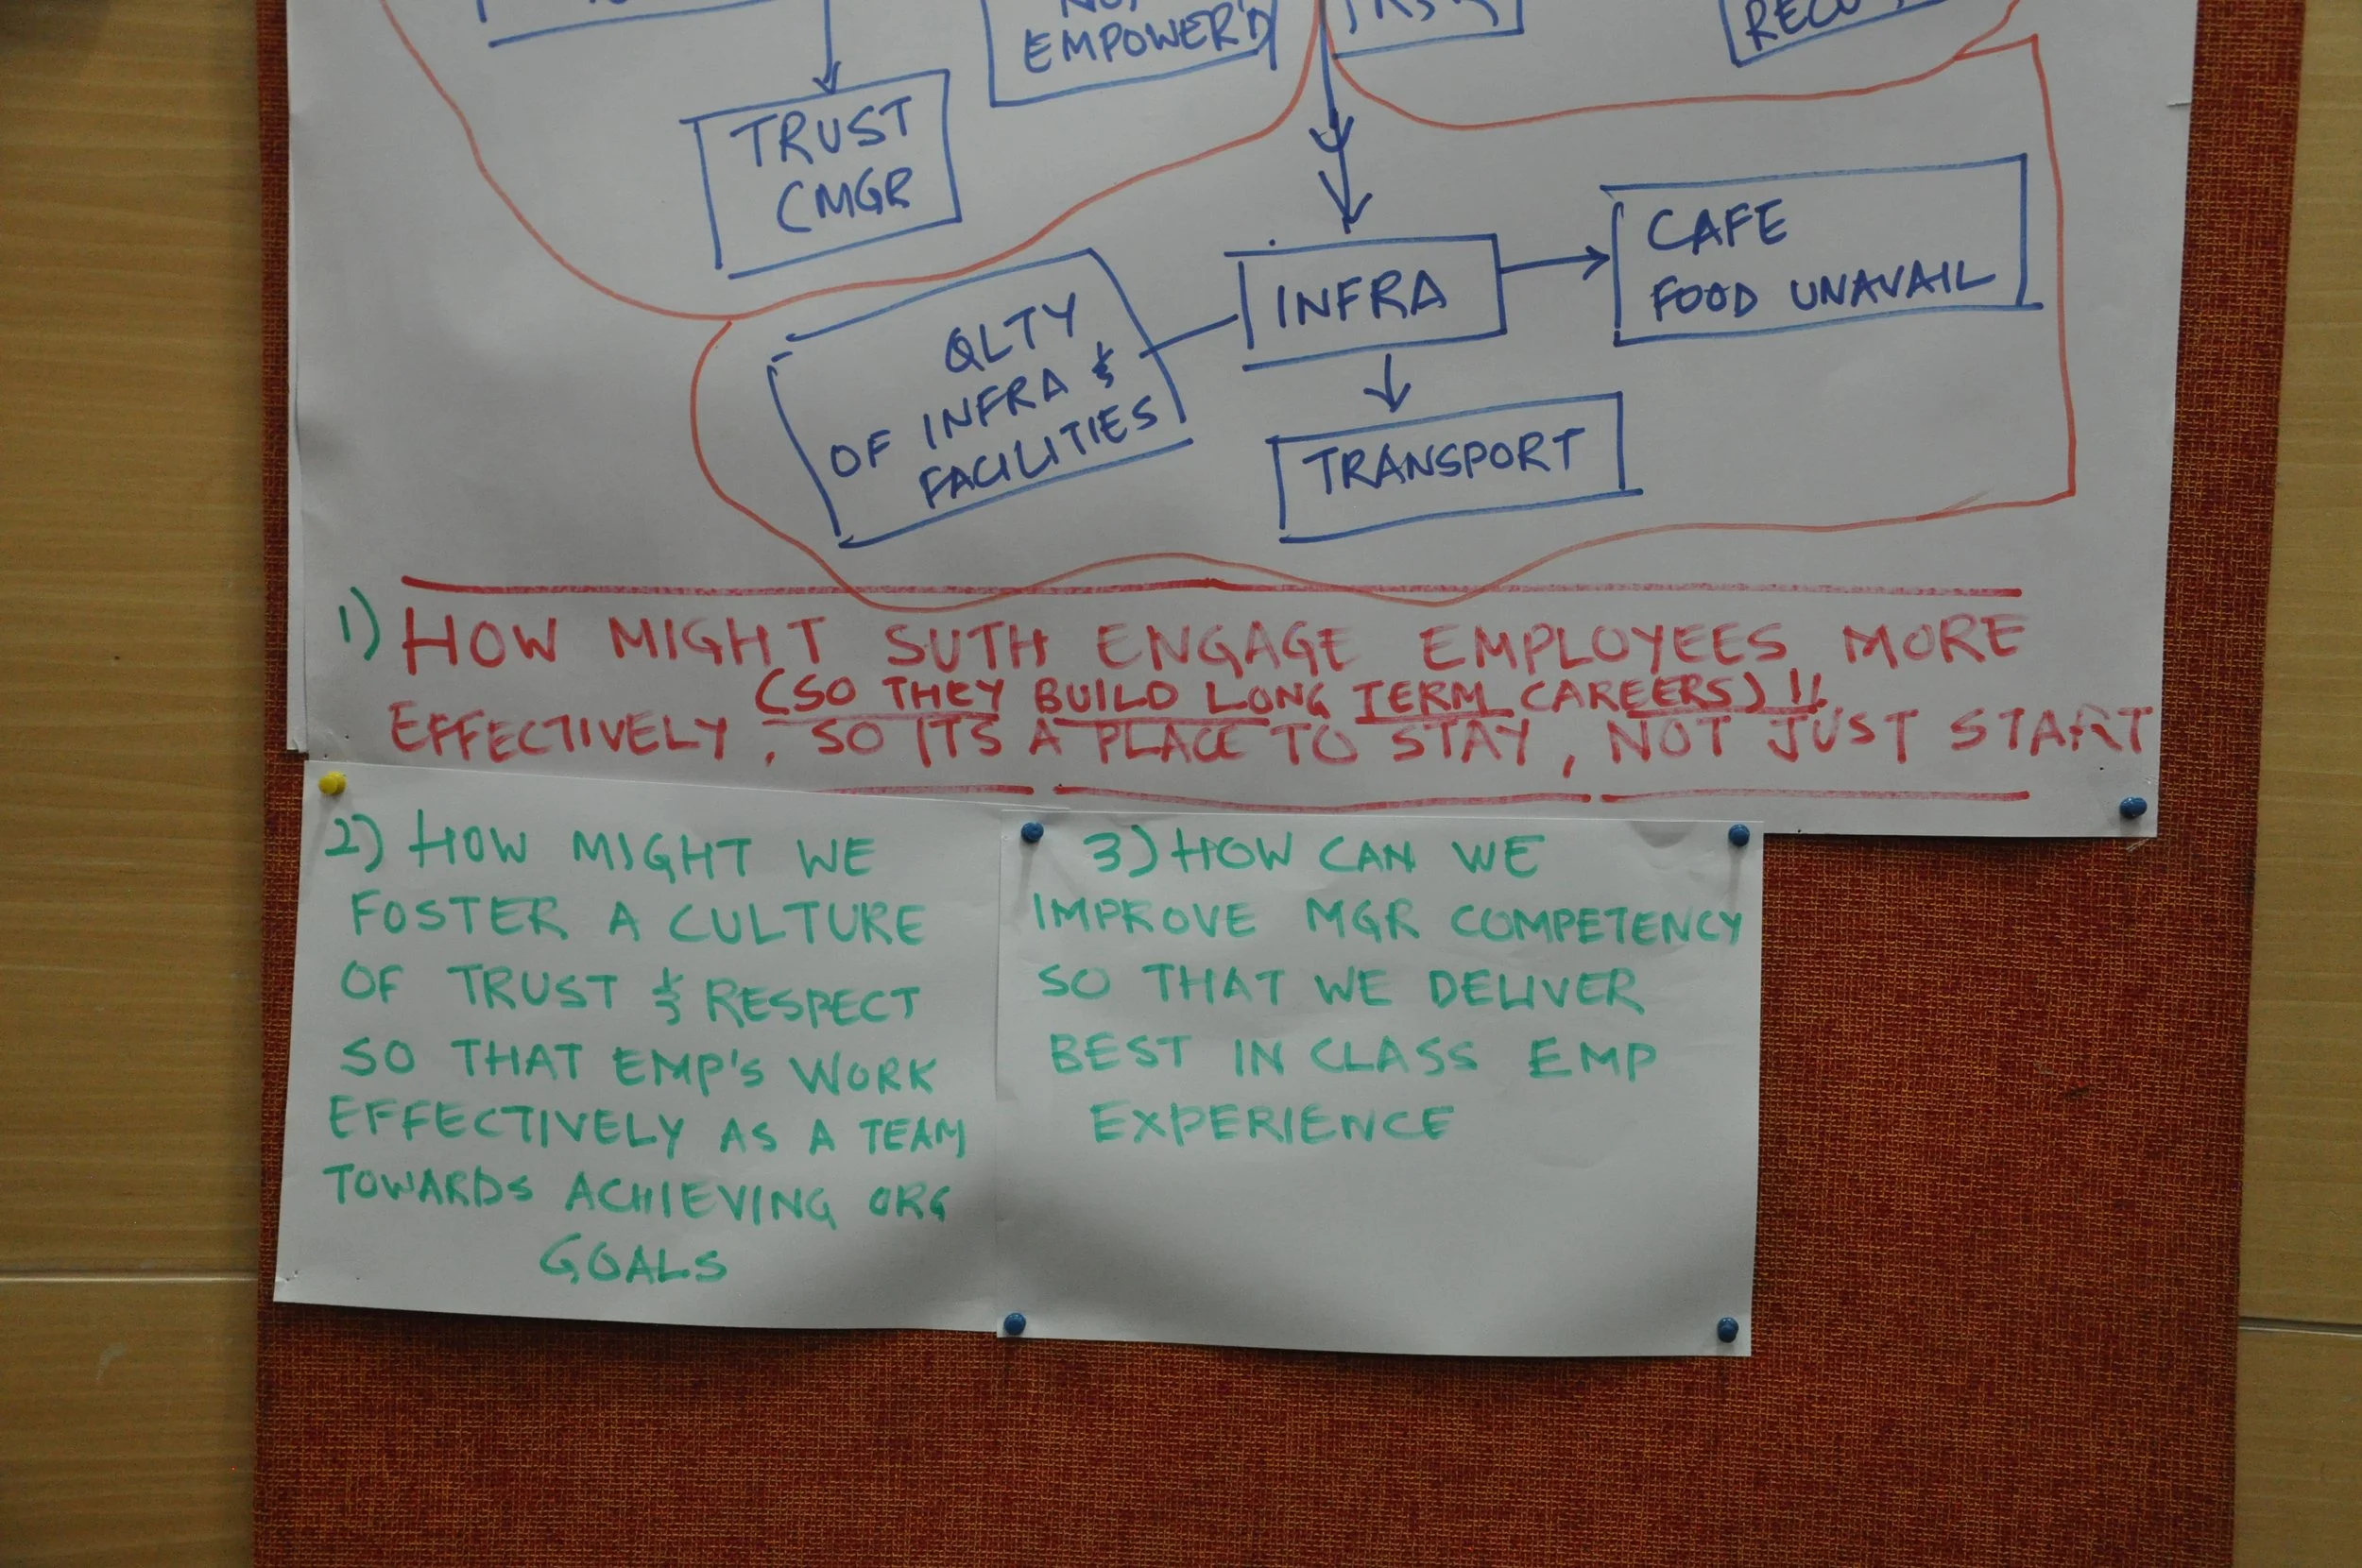 EMPOWER'D
TRUST
CMGR
CAFE
FOOD UNAVAIL
INFRA
QLTY
OF INFRA &
FACILITIES
TRANSPORT
1) HOW MIGHT SUTH ENGAGE EMPLOYEES MORE
(SO THEY BUILD LONG TERM CAREERS)!!
EFFECTIVELY, SO ITS A PLACE TO STAY, NOT JUST START
2) HOW MIGHT WE
FOSTER A CULTURE
OF TRUST & RESPECT
SO THAT EMP'S WORK
EFFECTIVELY AS A TEAM
TOWARDS ACHIEVING ORG
GOALS
3) HOW CAN WE
IMPROVE MGR COMPETENCY
SO THAT WE DELIVER
BEST IN CLASS EMP
EXPERIENCE